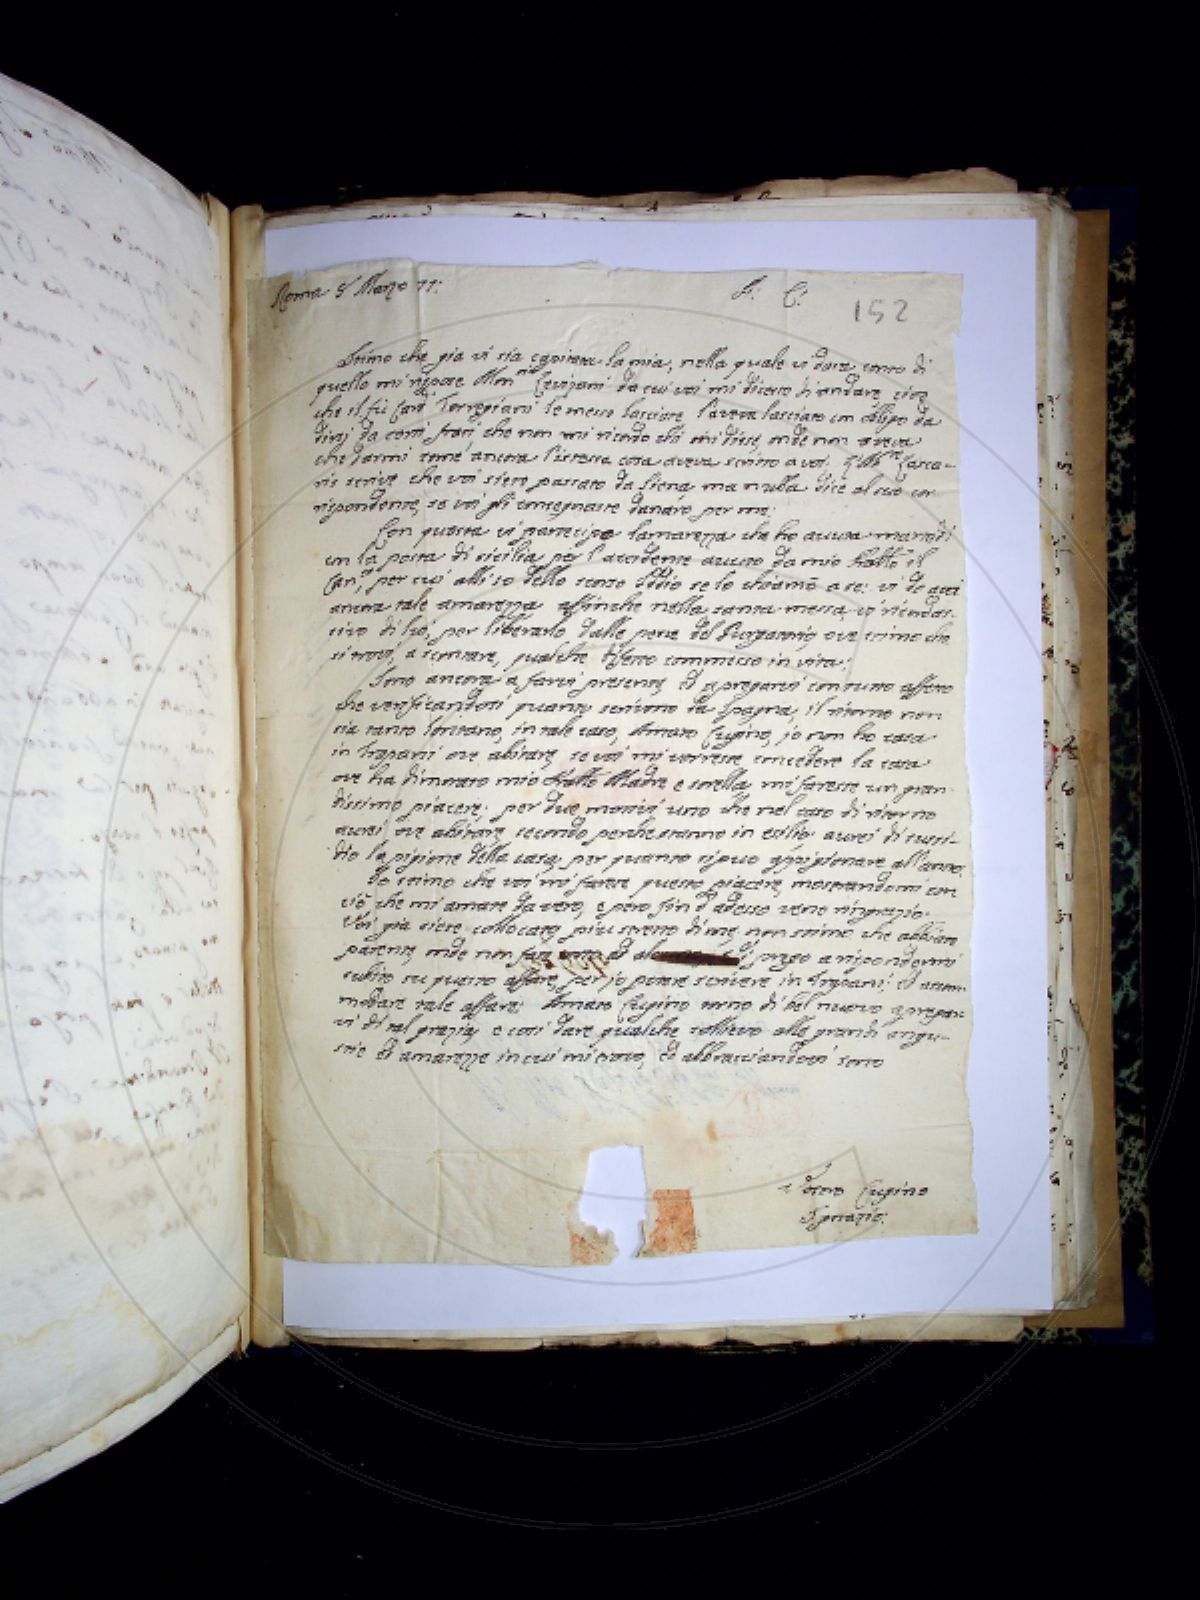 Roma 8 Marzo 77: A: C:
152
Stimo che già vi sia capitata la mia, nella quale vi dava conto di
quello mi rispose Mon.r Cervijani da cui voi mi diceste di andare, cioe
che il fù Car.l Torregiani le messe lasciate l'aveva lasciate un Obligo da
dirsi da certi frati che non mi ricordo chi mi disse, onde non aveva
che darmi come ancora l'istessa cosa aveva scritto a voi. Casca-
ris scrive che voi siete passato da Siena ma nulla dice al suo cor-
rispondente, se voi gli consegnaste danaro per me:
Con questa vi partecipo l'amarezza che ho avuta martedì
con la posta di Sicilia per l'accidente avuto da mio fratto il
Can.co per cui alli 10 dello scorso Iddio se lo chiamò a se: vi do
ancora tale amarezza affinche nella santa messa vi ricordas-
sivo di lui, per liberarlo dalle pene del Purgatorio, ove stimo che
si trovi, a scontare, qualche difetto commesso in vita:
Sono ancora a farvi presente, ed a pregarvi con tutto affetto
che verificandosi quanto scrivono da Spagna, il ritorno non
sia tanto lontano, in tale caso, Amato Cugino, io non ho casa
in Trapani ove abitare, se voi mi vorreste concedere la casa
ove ha dimorato mio fratto Madre e sorella mi fareste un gran-
dissimo piacere; per due motivi uno che nel caso di ritorno
aurei ove abitare secondo perche stanno in esilio aurei di sussi-
dio la pigione della casa, per quanto si puo appigionare all'anno.
Io stimo che voi mi farete questo piacere, mostrandomi con
ciò che mi amate da vero, e però fin d'adesso vene ringrazio.
Voi già siete collocato, più stretto di me, non stimo che abbiate
parente, onde non prego a rispondermi
subito su questo affare, per io potere scrivere in Trapani, ed accom-
modare tale affare; Amato Cugino torno di bel nuovo a pregar-
vi di tal grazia, e così dare qualche sollievo alle grandi angu-
stie ed amarezze in cui mi trovo, ed abbracciandovi sono
Vostro Cugino
Ignazio: